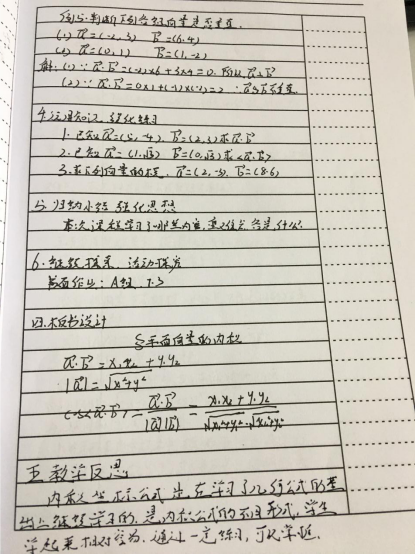 例5.判断下列各组向量是否垂直
(1) a=(-2,3) b=(6,4)
(2) a=(0,1) b=(1,-2)
解:(1)∵ a·b=(-2)×6+3×4=0 所以 a⊥b
(2)∵ a·b=0×1+(-1)×(-2)=2 ∴a与b不垂直
4.运用知识、强化练习
1.已知a=(5,-4), b=(2,3)求a·b
2.已知a=(1,√3) b=(0,√3)求<a,b>
3.求下列向量的模, a=(2,-3), b=(8,6)
5.归纳小结 强化思想
本次课学习了哪些内容,重点难点各是什么
6.继续探索、活动探究
书面作业:A组 1.3
四.板书设计
§平面向量的内积
a·b=x₁x₂+y₁y₂
|a|=√x²+y²
cos<a,b>=a·b/|a||b|=x₁x₂+y₁y₂/√x₁²+y₁²·√x₂²+y₂²
五.教学反思:
内积坐标公式是在学习了几何公式的基
础上继续学习的,是内积公式的不同形式,学生
学起来相对容易,通过一定练习,可以掌握.